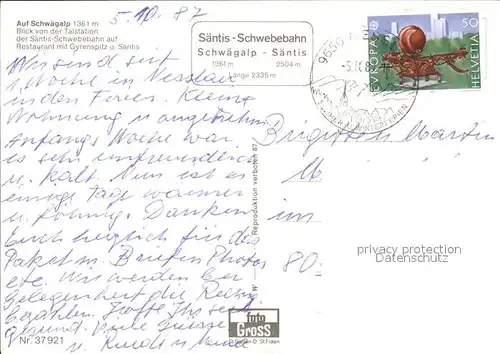 Auf Schwägalp 1361 m
Blick von der Talstation
der Säntis-Schwebebahn auf
Restaurant mit Gyrenspitz u. Säntis
5.10.87
Säntis-Schwebebahn
Schwägalp - Säntis
1361 m 2504 m
Länge 2335 m
9656
EUROPA
HELVETIA
50
Wir sind seit
1 Woche in Nesslau
in den Ferien. Kleine
Wohnung u. angenehm
Anfangs Woche war
es sehr unfreundlich
u. kalt. Nun ist es
einige Tage warmer
u. sonnig. Danken
Euch herzlich für das
Paket m. Briefen Photos
etc. Wir werden bei
Gelegenheit die Rechng
bezahlen. Hoffe Ihr seid
gesund. Viele Grüsse
u.
Brigitten Martin
M
im
80.-
privacy protection
Reproduktion verboten 87
foto
GROSS
St. Gallen
Nr. 37 921